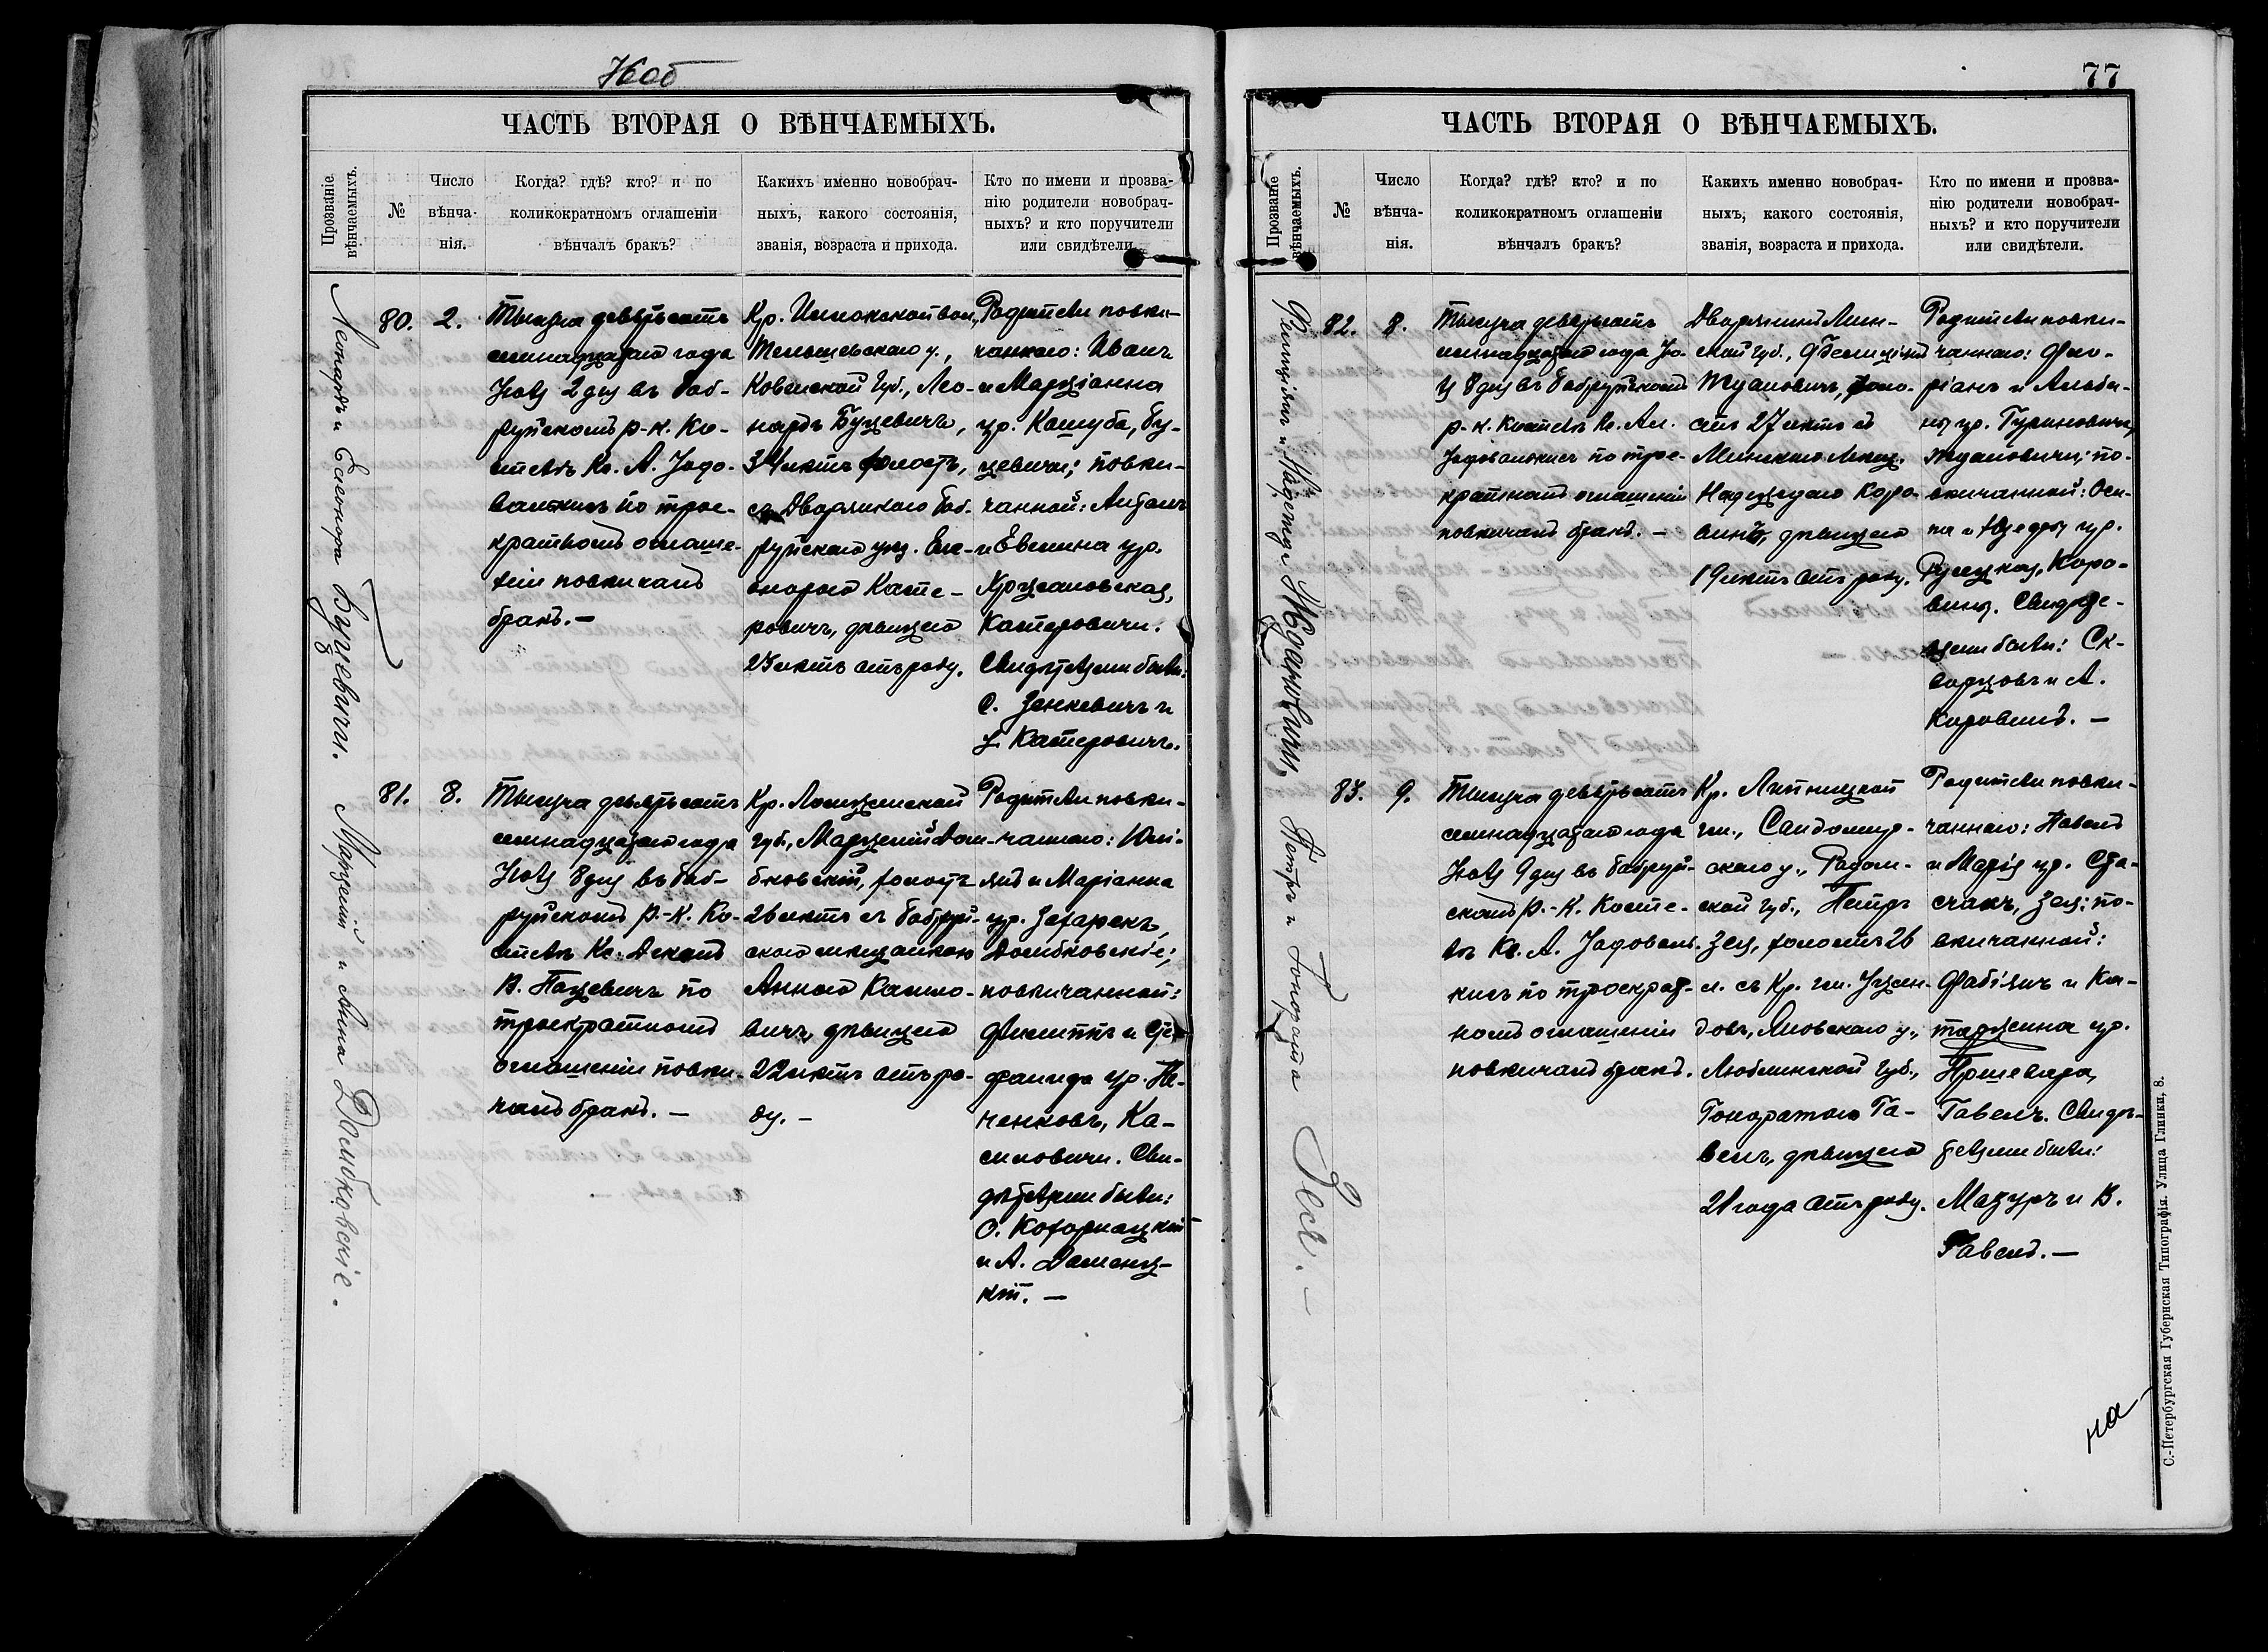 Ноб
ЧАСТЬ ВТОРАЯ О ВѢНЧАЕМЫХЪ.
Прозваніе вѣнчаемыхъ.
№
Число вѣнча-
нія.
Когда? гдѣ? кто? и по
коликократномъ оглашеніи
вѣнчалъ бракъ?
Какихъ именно новобрач-
ныхъ, какого состоянія,
званія, возраста и прихода.
Кто по имени и прозва-
нію родители новобрач-
ныхъ? и кто поручители
или свидѣтели.
Леонардъ и Елеонора Буцевичи.
80.
2.
Тысяча девятьсотъ
семнадцатаго года
Іюля 2 дня въ Боб-
руйскомъ р.-к. Ко-
стелѣ Кс. А. Задо-
вальскисъ по трое-
кратномъ оглаше-
ніи повѣнчалъ
бракъ.—
Кр. вол.,
Тельшевскаго у.,
Ковенской губ., Лео-
нардъ Буцевичъ,
34 лѣтъ холостъ,
съ Дворянкою Боб-
руйскаго уѣз. Еле-
онорою Касте-
ровичъ, дѣвицею
25 лѣтъ отъ роду.
Родители повѣн-
чаннаго: Иванъ
и Марціанна
ур. Кашуба, Бу-
цевичи; повѣн-
чанной: Антонъ
и Евелина ур.
Кастеровичи.
Свидѣтелями были:
С. Зенкевичъ и
Кастеровичъ.
Марцелій и Анна Домбковскіе.
81.
8.
Тысяча девятьсотъ
семнадцатаго года
Іюля 8 дня въ Боб-
руйскомъ Р.-К. Ко-
стелѣ Кс. Деканъ
В. Пацевичъ по
троекратномъ
оглашеніи повѣн-
чалъ бракъ.—
Кр. Ломжинской
губ., Марцелій Дом-
бковскій, холостъ
26 лѣтъ съ Бобруй-
скою мѣщанкою
Анною Касило-
вичъ, дѣвицею
22 лѣтъ отъ ро-
ду.—
Родители повѣн-
чаннаго: Юлі-
янъ и Маріанна
ур.
Домбковскіе;
повѣнчанной:
Филиппъ и Сте-
фанида ур.
Ка-
силовичи. Сви-
дѣтелями были:
О.
и А.
77
ЧАСТЬ ВТОРАЯ О ВѢНЧАЕМЫХЪ.
Прозваніе вѣнчаемыхъ.
№
Число вѣнча-
нія.
Когда? гдѣ? кто? и по
коликократномъ оглашеніи
вѣнчалъ бракъ?
Какихъ именно новобрач-
ныхъ, какого состоянія,
званія, возраста и прихода.
Кто по имени и прозва-
нію родители новобрач-
ныхъ? и кто поручители
или свидѣтели.
и Надежда Ждановичи,
82.
8.
Тысяча девятьсотъ
семнадцатаго года Ію-
ля 8 дня въ Бобруйскомъ
р.-к. Костелѣ Кс. Ал.
Задовальскисъ по трое-
кратномъ оглашеніи
повѣнчалъ бракъ.—
Дворянинъ Мин-
ской губ.,
Ждановичъ, холо-
стъ 27 лѣтъ съ
Минскою мѣщ.
Надеждою Коро-
винъ, дѣвицею
19 лѣтъ отъ роду.
Родители повѣн-
чаннаго: Фло-
ріанъ и Альби-
на ур. Гуриновичъ,
Ждановичи; по-
вѣнчанной: Оси-
па и Ѳеодоры ур.
Рудзкая, Коро-
вины. Свидѣте-
лями были: Ск-
ворцовъ и А.
Коровинъ.—
Петръ и Гонората Зеля.—
83.
9.
Тысяча девятьсотъ
семнадцатаго года
Іюля 9 дня въ Бобруй-
скомъ Р.-К. Косте-
лѣ Кс. А. Задоваль-
кисъ по троекрат-
номъ оглашеніи
повѣнчалъ бракъ.
Кр. Липницкой
гм., Сандомир-
скаго у., Радом-
ской губ., Петръ
Зеля, холостъ 26
л. съ Кр. гм.
довъ, Яновскаго у.,
Люблинской губ.,
Гоноратою Га-
велъ, дѣвицею
21 года отъ роду.
Родители повѣн-
чаннаго: Павелъ
и Марія ур. Ста-
счакъ, Зеля; по-
вѣнчанной:
Фабіянъ и Ка-
таржина ур.
Пршевара,
Гавелъ. Свидѣ-
телями были:
Мазуръ и В.
Гавелъ.—
на
С.-Петербургская Губернская Типографія. Улица Глинки, 8.